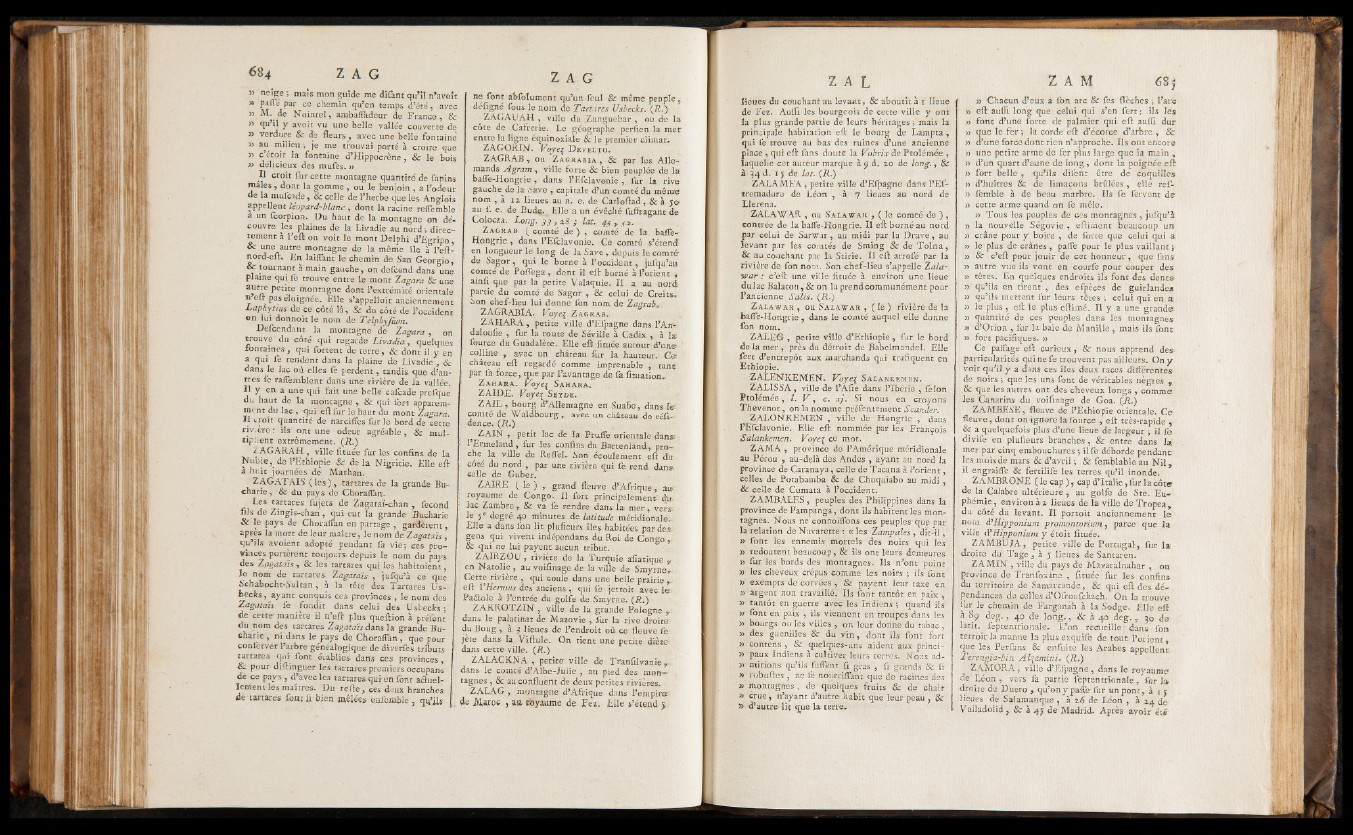 684 Z A G
» neige ; mais mon guide me disant qu'il n'avoit
» passé par ce chemin qu'en temps d'été, avec
» M. de Nointel, ambassadeur de France, &
» qu'il y avoit vu une belle vallée couverte de
» verdure & de fleurs, avec une belle fontaine
» au milieu ; je me trouvai porté à croire que
» c'étoit la fontaine d'Hippocrène, & le bois
» délicieux des muses. »
Il croît sur cette montagne quantité de sapins
mâles, dont la gomme, ou le benjoin, a l'odeur
de la muscade, & celle de l'herbe que les Anglois
appellent léopard-blanc, dont la racine ressemble
à un scorpion. Du haut de la montagne on dé-
couvre les plaines de la Livadie au nord ; direc-
tement à l'est on voit le mont Delphi d'Egripo,
& une autre montagne de la même île à l'est-
nord-est. En laissant le chemin de San Georgio,
& tournant à main gauche, on descend dans une
plaine qui se trouve entre le mont Zagara & une
autre petite montagne dont l'extrémité orientale
n'est pas éloignée. Elle s'appelloit anciennement
Laphytius de ce côté là, & du côté de l'occident
on lui donnoit le nom de Telphysium.
Descendant la montagne de Zagara, on
trouve du côté qui regarde Livadia, quelques
fontaines, qui sortent de terre, & dont il y en
a qui se rendent dans la plaine de Livadie, &
dans le lac où elles se perdent, tandis que d'au-
tres se rassemblent dans une rivière de la vallée.
Il y en a une qui fait une belle cascade presque
du haut de la montagne, & qui sort apparem-
ment du lac, qui est sur le haut du mont Zagara.
Il croît quantité de narcisses sur le bord de cette
rivière : ils ont une odeur agréable, & mul-
tiplient extrêmement. (R.)
ZAGARAH, ville située sur les confins de la
Nubie, de l'Ethiopie & de la Nigritie. Elle est
à huit journées de Mathan.
ZAGATAIS (les), tartares de la grande Bu-
charie, & du pays de Chorassan.
Les tartares sujets de Zagataï-chan, second
fils de Zingis-chan, qui eut la grande Bucharie
& le pays de Chorassan en partage, gardèrent,
après la mort de leur maître, le nom de Zagataïs,
qu'ils avoient adopté pendant sa vie ; ces pro-
vinces portèrent toujours depuis le nom du pays
des Zagataïs, & les tartares qui les habitoient,
le nom de tartares Zagataïs, jusqu'à ce que
Schabocht-Sultan, à la tête des Tartares Us-
becks, ayant conquis ces provinces, le nom des
Zagataïs se fondit dans celui des Usbecks ;
de cette manière il n'est plus question à présent
du nom des tartares Zagataïs dans la grande Bu-
charie, ni dans le pays de Chorassan, que pour
conserver l'arbre généalogique de diverses tribus
tartares qui sont établies dans ces provinces,
& pour distinguer les tartares premiers occupans
de ce pays, d'avec les tartares qui en sont actuel-
lement les maîtres. Du reste, ces deux branches
de tartares sont si bien mêlées ensemble, qu'ils
Z A G
ne font absolument qu'un seul & même peuple,
désigné sous le nom de Tartares Usbecks. (R.)
ZAGAUAH, ville du Zanguebar, ou de la
côte de Cafrerie. Le géographe persien la met
entre la ligne équinoxiale & le premier climat.
ZAGORIN. Voyez DEVELTO.
ZAGRAB, ou ZAGRABIA, & par les Alle-
mands Agram, ville forte & bien peuplée de la
basse-Hongrie, dans l'Esclavonie, sur la rive
gauche de la Save, capitale d'un comté du même
nom, à 12 lieues au n. e. de Carlostad, & à 50
au s. e. de Bude. Elle a un évêché suffragant de
Colocza. Long. 33, 28 ; lat. 45, 52.
ZAGRAB (comté de), comté de la basse-
Hongrie, dans l'Esclavonie. Ce comté s'étend
en longueur le long de la Save, depuis le comté
de Sagor, qui le borne à l'occident, jusqu'au
comté de Possega, dont il est borné à l'orient,
ainsi que par la petite Valaquie. Il a au nord
partie du comté de Sagor, & celui de Creits.
Son chef-lieu lui donne son nom de Zagrab.
ZAGRABIA. Voyez ZAGRAB.
ZAHARA, petite ville d'Espagne dans l'An-
dalousie, sur la route de Séville à Cadix, à la
source du Guadalète. Elle est située autour d'une
colline, avec un château sur la hauteur. Ce
château est regardé comme imprenable, tant
par sa force, que par l'avantage de sa situation.
ZAHARA. Voyez SAHARA.
ZAIDE. Voyez SEYDE.
ZAIL, bourg d'Allemagne en Suabe, dans le
comté de Waldbourg, avec un château de rési-
dence. (R.)
ZAIN, petit lac de la Prusse orientale dans
l'Ermeland, sur les confins du Bartenland, pro-
che la ville de Ressel. Son écoulement est du
côté du nord, par une rivière qui se rend dans
celle de Guber.
ZAIRE (le), grand fleuve d'Afrique, au
royaume de Congo. Il sort principalement du
lac Zambre, & va se rendre dans la mer, vers
le 5e degré 40 minutes de latitude méridionale.
Elle a dans son lit plusieurs îles habitées par des
gens qui vivent indépendans du Roi de Congo,
& qui ne lui payent aucun tribut.
ZAIRZOU, rivière de la Turquie asiatique,
en Natolie, au voisinage de la ville de Smyrne.
Cette rivière, qui coule dans une belle prairie,
est l'Hermus des anciens, qui se jettoit avec le
Pactole à l'entrée du golfe de Smyrne. (R.)
ZAKROTZIN, ville de la grande Pologne,
dans le palatinat de Mazovie, sur la rive droite
du Boug, à 3 lieues de l'endroit où ce fleuve se
jète dans la Vistule. On tient une petite diète
dans cette ville. (R.)
ZALACKNA, petite ville de Transilvanie,
dans le comté d'Albe-Julie, au pied des mon-
tagnes, & au confluent de deux petites rivières.
ZALAG, montagne d'Afrique dans l'empire
de Maroc, au royaume de Fez. Elle s'étend 5
Z A L
lieues du couchant au levant, & aboutit à 1 lieue
de Fez. Aussi les bourgeois de cette ville y ont
la plus grande partie de leurs héritages ; mais la
principale habitation est le bourg de Lampta,
qui se trouve au bas des ruines d'une ancienne
place, qui est sans doute la Vobrix de Ptolémée,
laquelle cet auteur marque à 9 d. 20 de long., &
à 34 d. 15 de lat. (R.)
ZALAMEA, petite ville d'Espagne dans l'Es-
tremadure de Léon, à 7 lieues au nord de
Llerena.
ZALAWAR, ou SALAWAR, (le comté de),
contrée de la basse-Hongrie. Il est borné au nord
par celui de Sarwar, au midi par la Drave, au
levant par les comtés de Sming & de Tolna,
& au couchant par la Stirie. Il est arrosé par la
rivière de son nom. Son chef-lieu s'appelle Zala-
war : c'est une ville située à environ une lieue
du lac Balaton, & on la prend communément pour
l'ancienne Sales. (R.)
ZALAWAR, ou SALAWAR, (le) rivière de la
basse-Hongrie, dans le comté auquel elle donne
son nom.
ZALEG, petite ville d'Ethiopie, sur le bord
de la mer, près du détroit de Babelmandel. Elle
sert d'entrepôt aux marchands qui trafiquent en
Ethiopie.
ZALENKEMEN. Voyez SALANKEMEN.
ZALISSA, ville de l'Asie dans l'Ibérie, selon
Ptolémée, l. V, c. xj. Si nous en croyons
Thevenot, on la nomme présentement Scander.
ZALONKEMEN, ville de Hongrie, dans
l'Esclavonie. Elle est nommée par les François
Salankemen. Voyez ce mot.
ZAMA, province de l'Amérique méridionale
au Pérou, au-delà des Andes, ayant au nord la
province de Caranaya, celle de Tacana à l'orient,
celles de Potabamba & de Chuquiabo au midi,
& celle de Cumata à l'occident.
ZAMBALES, peuples des Philippines dans la
province de Pampanga, dont ils habitent les mon-
tagnes. Nous ne connoissons ces peuples que par
la relation de Navarette : « les Zampales, dit-il,
» sont les ennemis mortels des noirs qui les
» redoutent beaucoup, & ils ont leurs demeures
» sur les bords des montagnes. Ils n'ont point
» les cheveux crépus comme les noirs ; ils sont
» exempts de corvées, & payent leur taxe en
» argent non travaillé. Ils sont tantôt en paix,
» tantôt en guerre avec les Indiens ; quand ils
» sont en paix, ils viennent en troupes dans les
» bourgs ou les villes, on leur donne du tabac,
» des guenilles & du vin, dont ils sont fort
» contens, & quelques-uns aident aux princi-
» paux Indiens à cultiver leurs terres. Nous ad-
» mirions qu'ils fussent si gras, si grands & si
» robustes, ne se nourrissant que de racines des
» montagnes, de quelques fruits & de chair
» crue, n'ayant d'autre habit que leur peau, &
» d'autre lit que la terre.
Z A M 685
» Chacun d'eux a son arc & ses flèches ; l'arc
» est aussi long que celui qui s'en sert ; ils les
» font d'une sorte de palmier qui est aussi dur
» que le fer ; la corde est d'écorce d'arbre, &
» d'une force dont rien n'approche. Ils ont encore
» une petite arme de fer plus large que la main,
» d'un quart d'aune de long, dont la poignée est
» fort belle, qu'ils disent être de coquilles
» d'huîtres & de limaçons brûlées, elle res-
» semble à de beau marbre. Ils se servent de
» cette arme quand on se mêle.
» Tous les peuples de ces montagnes, jusqu'à
» la nouvelle Ségovie, estiment beaucoup un
» crâne pour y boire, de sorte que celui qui a
» le plus de crânes, passe pour le plus vaillant ;
» & c'est pour jouir de cet honneur, que sans
» autre vue ils vont en course pour couper des
» têtes. En quelques endroits ils font des dents
» qu'ils en tirent, des espèces de guirlandes
» qu'ils mettent sur leurs têtes ; celui qui en a
» le plus, est le plus estimé. Il y a une grande
» quantité de ces peuples dans les montagnes
» d'Orion, sur la baie de Manille, mais ils sont
» fort pacifiques. »
Ce passage est curieux, & nous apprend des
particularités qui ne se trouvent pas ailleurs. On y
voit qu'il y a dans ces îles deux races différentes
de noirs ; que les uns sont de véritables nègres,
& que les autres ont des cheveux longs, comme
les Canarins du voisinage de Goa. (R.)
ZAMBESE, fleuve de l'Ethiopie orientale. Ce
fleuve, dont on ignore la source, est très-rapide,
& a quelquefois plus d'une lieue de largeur ; il se
divise en plusieurs branches, & entre dans la
mer par cinq embouchures ; il se déborde pendant
les mois de mars & d'avril ; & semblable au Nil,
il engraisse & fertilise les terres qu'il inonde.
ZAMBRONE (le cap), cap d'Italie, sur la côte
de la Calabre ultérieure, au golfe de Ste. Eu-
phémie, environ à 2 lieues de la ville de Tropea,
du côté du levant. Il portoit anciennement le
nom d'Hipponium promontorium, parce que la
ville d'Hipponium y étoit située.
ZAMBUJA, petite ville de Portugal, sur la
droite du Tage, à 5 lieues de Santaren.
ZAMIN, ville du pays de Mavaralnahar, ou
province de Transoxane, située sur les confins
du territoire de Samarcande, & qui est des dé-
pendances de celles d'Osrouschach. On la trouve
sur le chemin de Farganah à la Sodge. Elle est
à 89 deg., 40 de long., & à 40 deg., 30 de
latit. septentrionale. L'on recueille dans son
terroir la manne la plus exquise de tout l'orient,
que les Persans & ensuite les Arabes appellent
Terengia-bin Alzamini. (R.)
ZAMORA, ville d'Espagne, dans le royaume
de Léon, vers sa partie septentrionale, sur la
droite du Duero, qu'on y passe sur un pont, à 15
lieues de Salamanque, à 26 de Léon, à 24 de
Valladolid, & à 45 de Madrid. Après avoir été